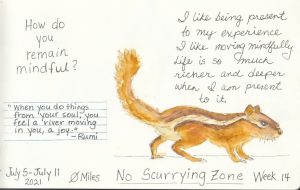 How do
you
remain
mindful?
I like being present
to my experience
I like moving mindfully
Life is so much
richer and deeper
when I am present
to it.
"When you do things
from 'your soul', you
feel a 'river moving
in you, a joy."
-Rumi
July 5-July 11
2021
0 Miles
No Scurrying Zone
Week 14